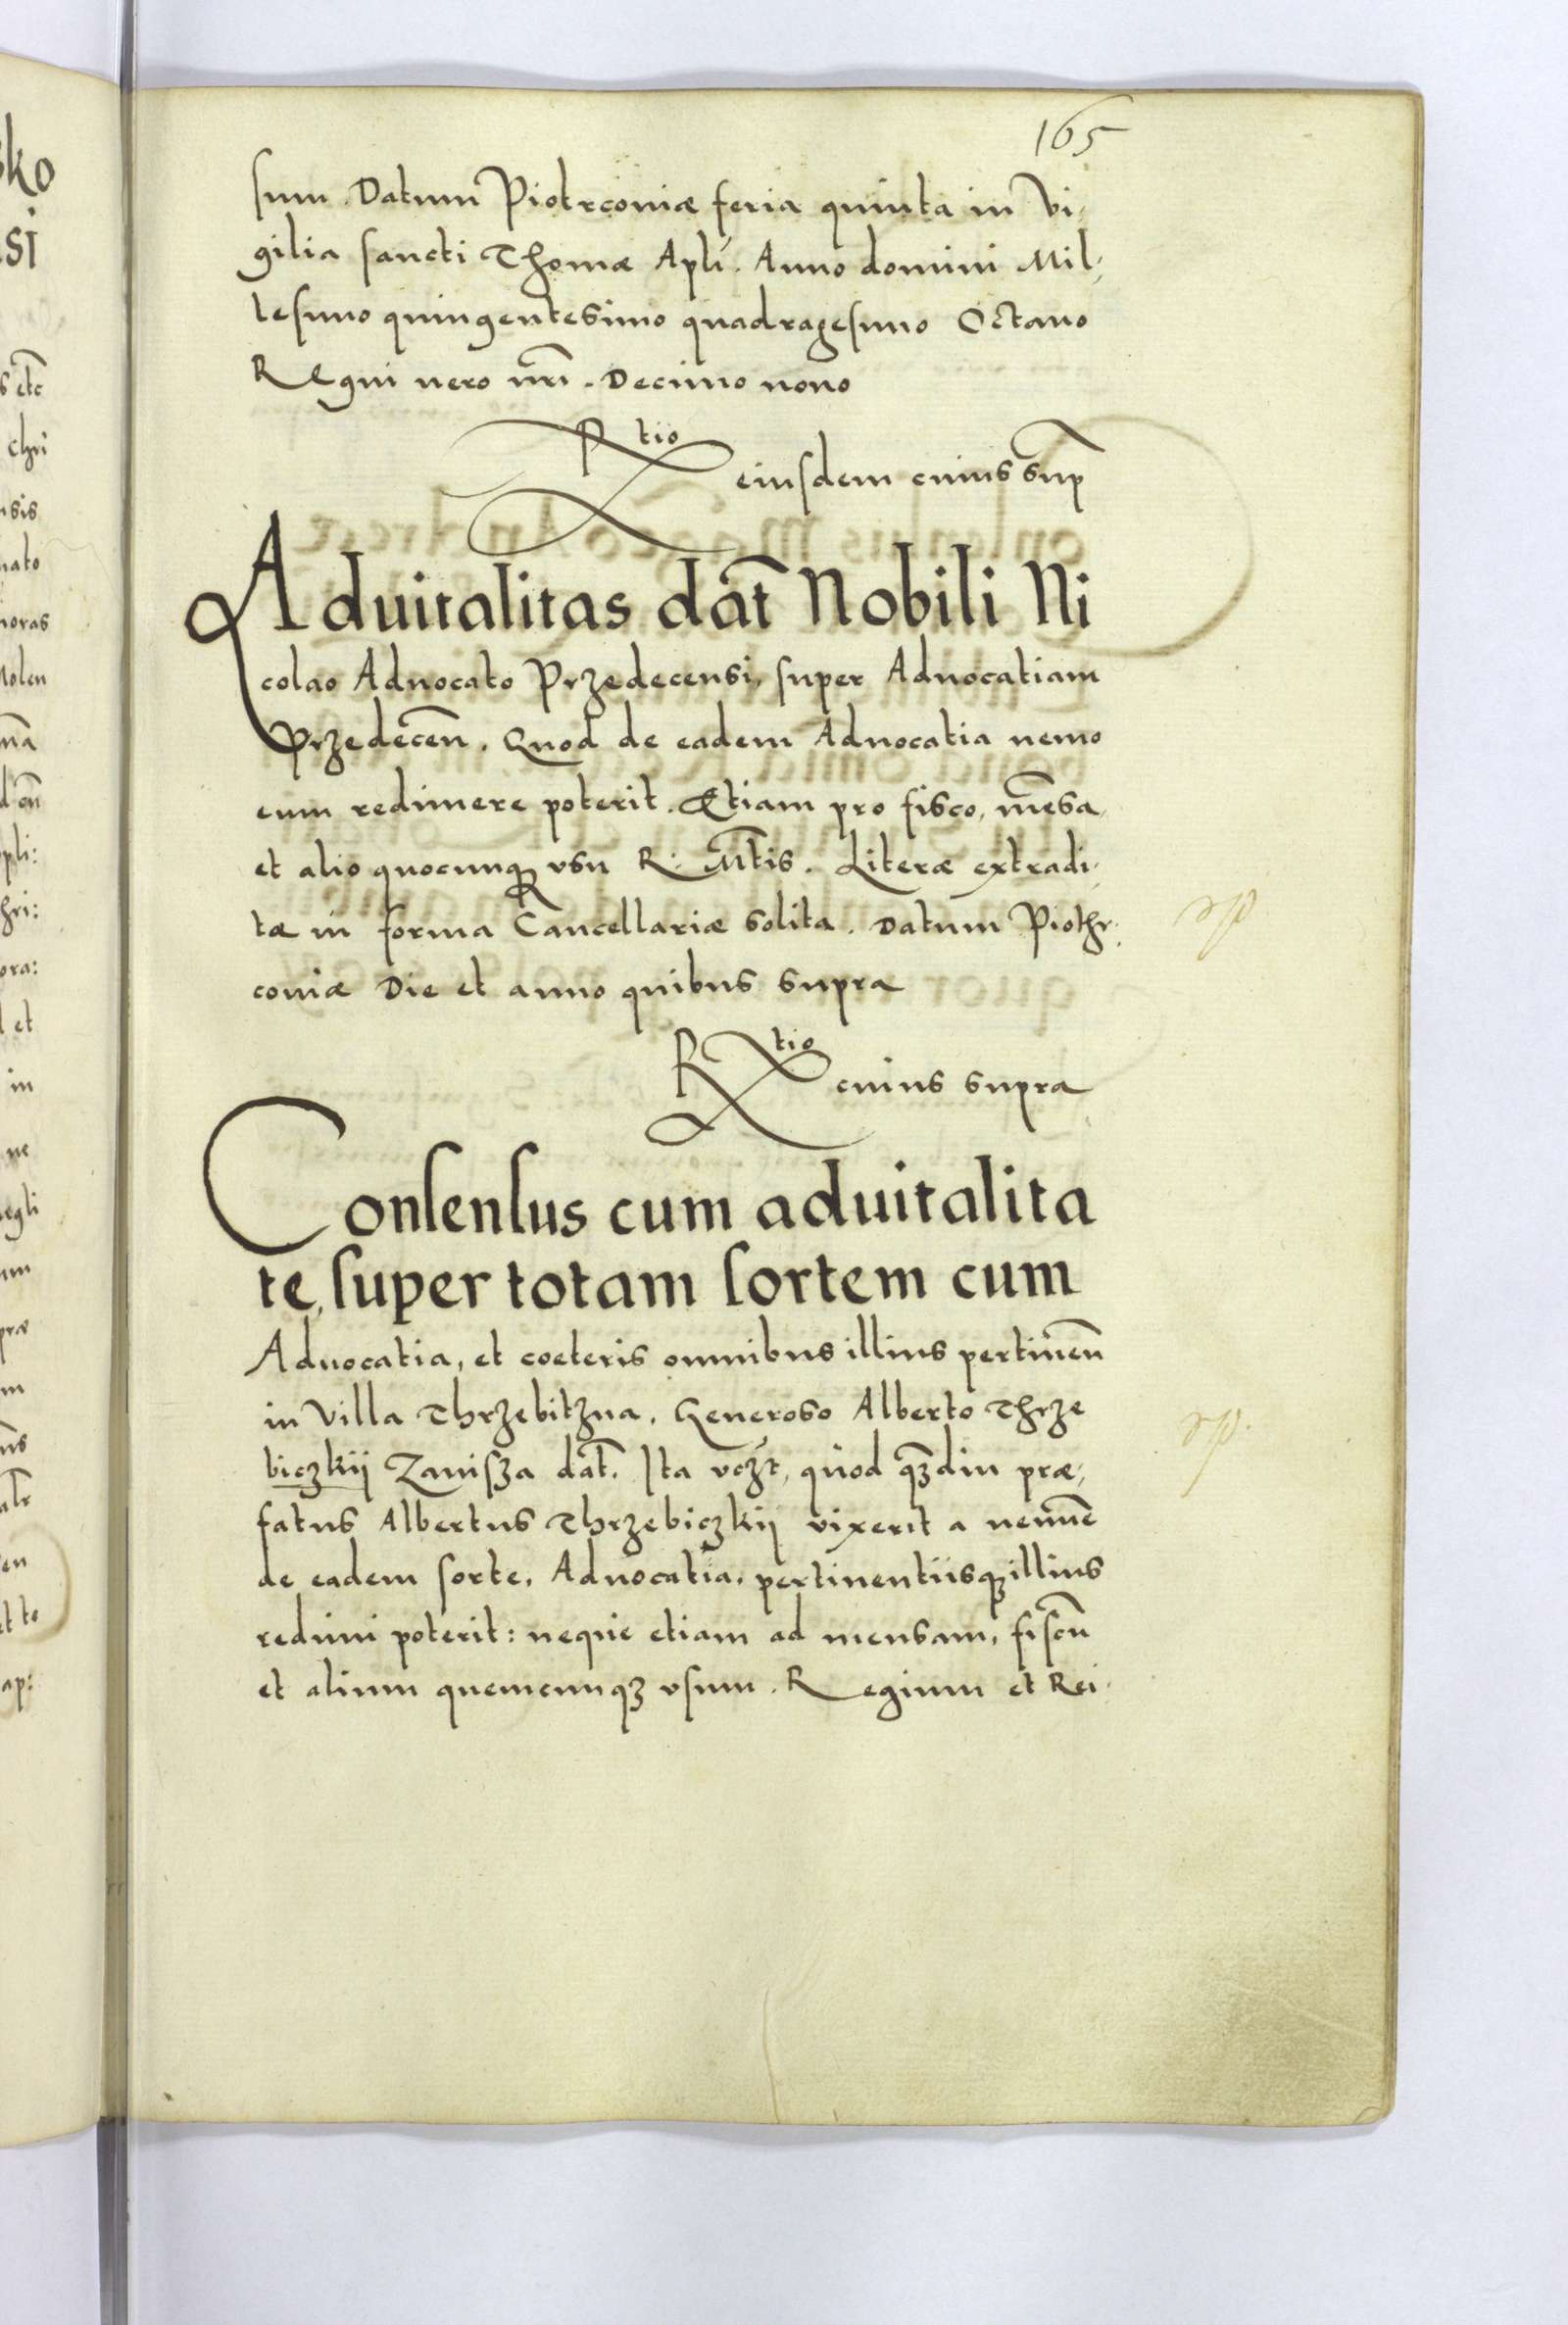 165
sum. Datum Piotrconiæ feria quinta in Vi-
gilia sancti Thomæ Apli. Anno domini Mil-
lesimo quingentesimo quadragesimo Octavo
Regni vero nri. Decimo nono
Rtio eiusdem cuius sup
Aduitalitas dat Nobili Ni
colao Aduocato Przedecensi, super Aduocatiam
Przedecen. Quod de eadem Aduocatia nemo
eum redimere poterit. Etiam pro fisco, mesa
et alio quocunq; vsu R. Mtis. Literæ extradi-
tæ in forma Cancellariæ solita. Datum Piothr-
coniæ Die et anno quibus supra
Rtio cuius supra
Consensus cum aduitalita
te, super totam sortem cum
Aduocatia, et coeteris omnibus illius pertinen
in Villa Thrzebitzna. Generoso Alberto Thrze
biczkij Zanisza dat. Ita vczt, quod qzdiu præ-
fatus Albertus Thrzebiczkij vixerit a nemine
de eadem sorte, Aduocatia, pertinentiisqz illius
redimi poterit: neque etiam ad mensam, fiscu
et alium quemcunqz vsum. Regium et Rei-